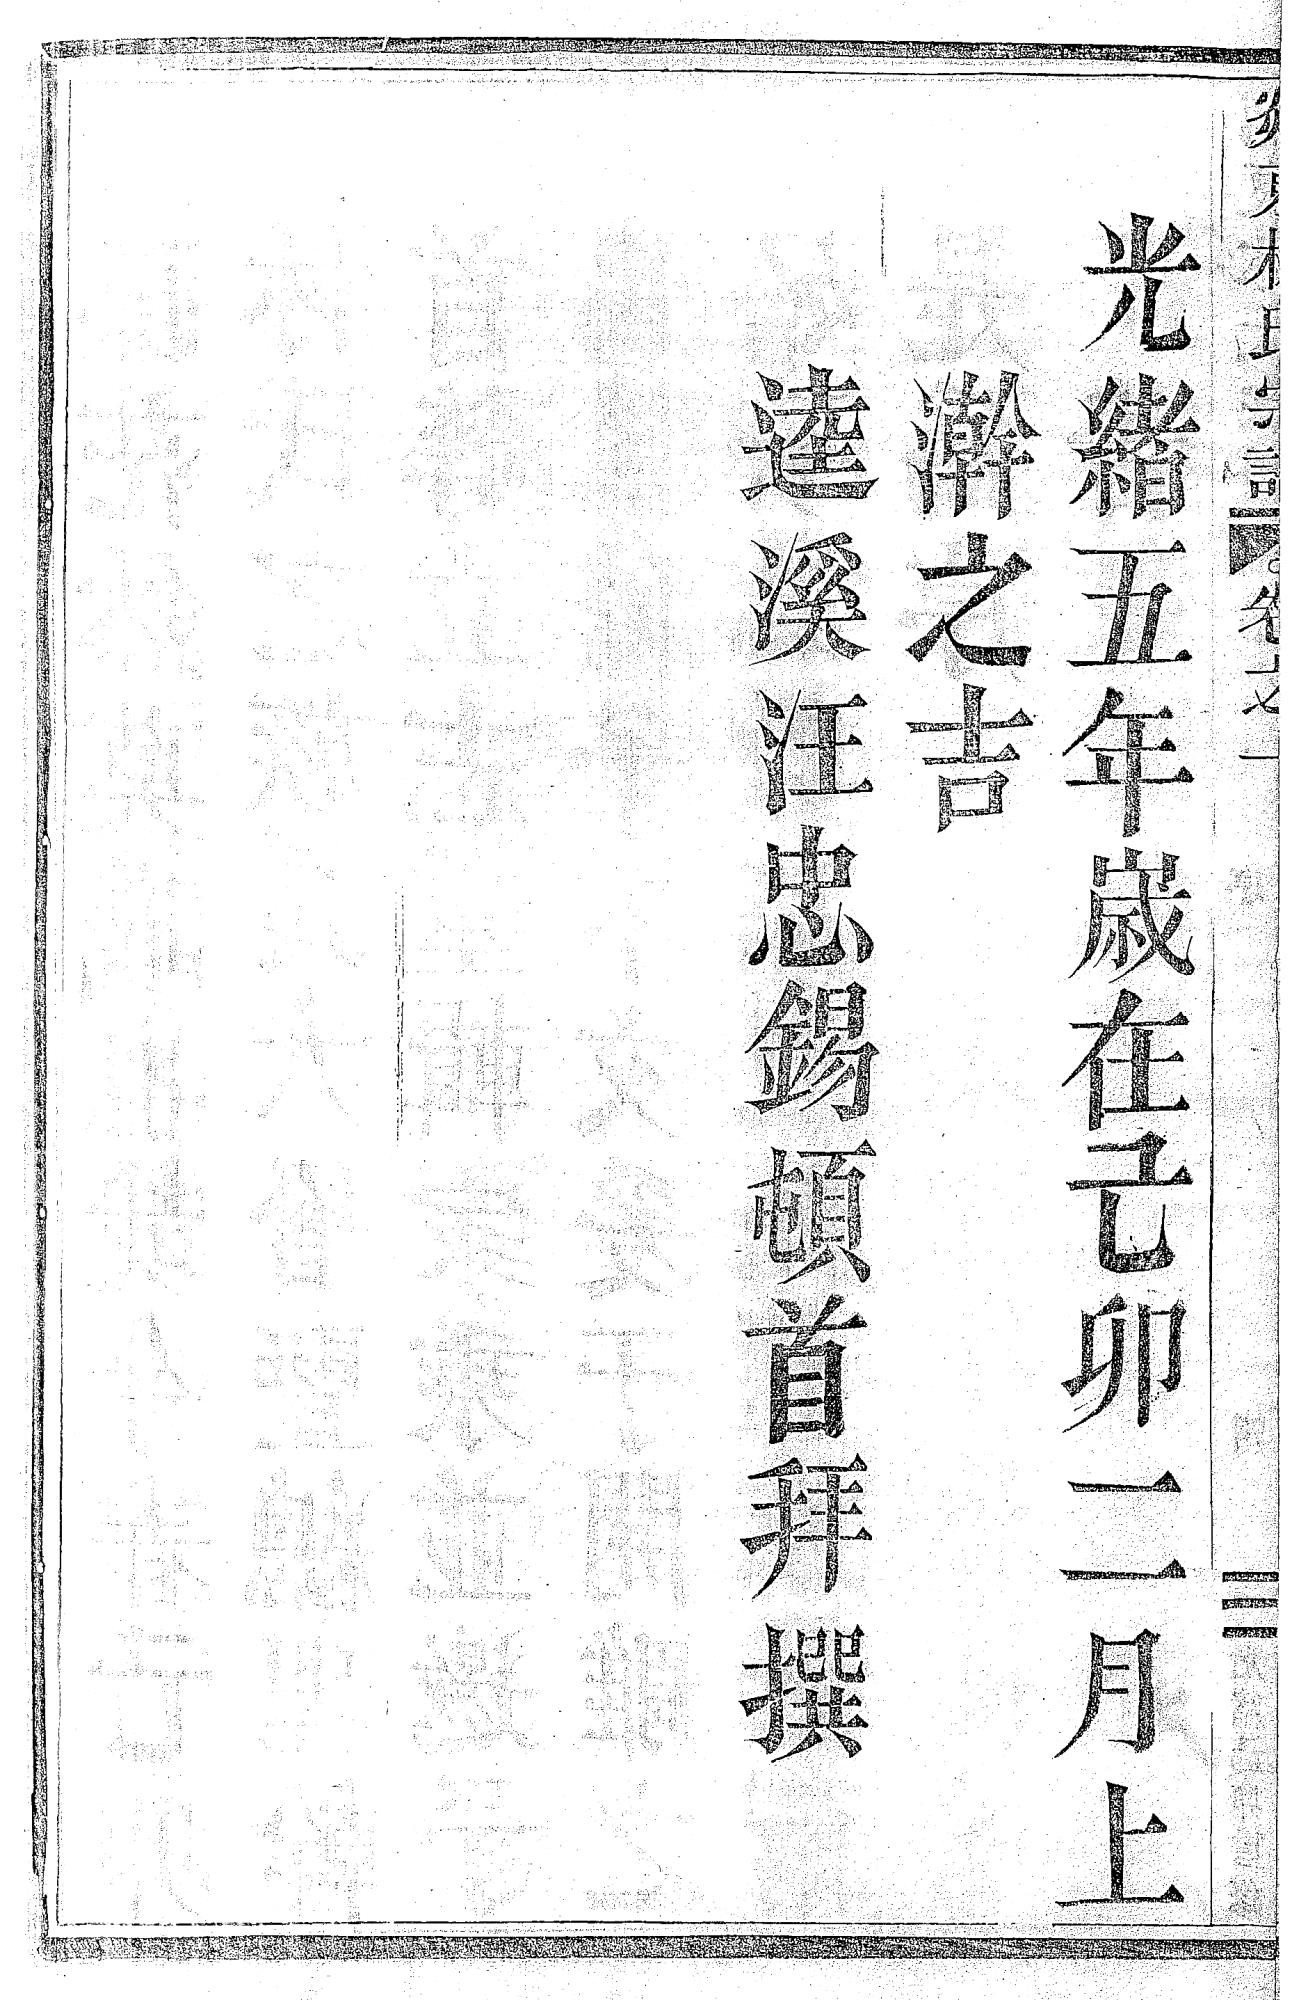 氏宗譜 卷之一
光緒五年嵗在己卯二月上
澣之吉
逵溪汪忠錫頓首拜撰